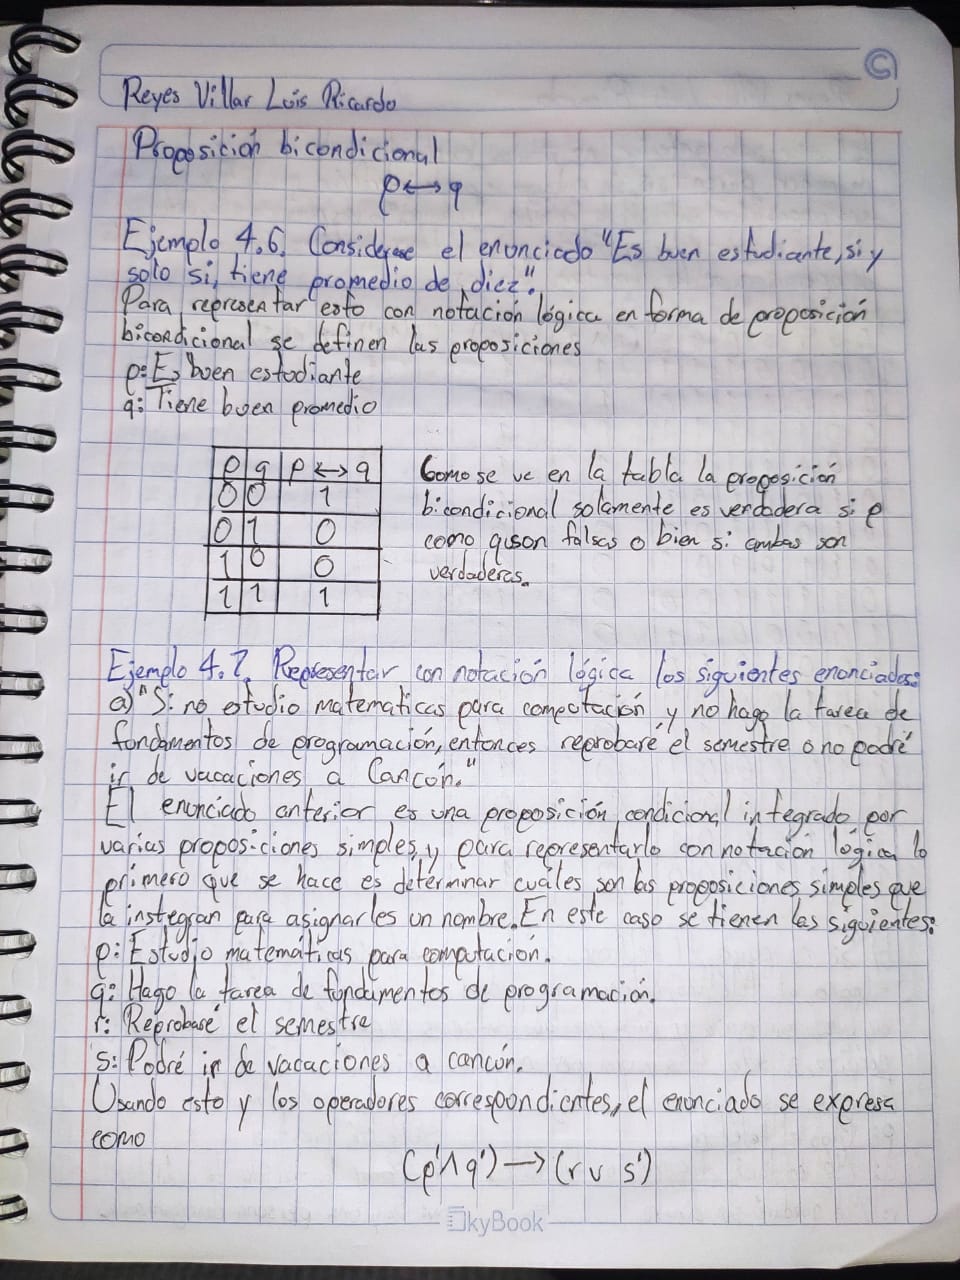 Reyes Villar Luis Ricardo
Proposición bicondicional
p⟷q
Ejemplo 4.6. Considerese el enunciado "Es buen estudiante, si y
solo si, tiene promedio de diez".
Para representar esto con notación lógica en forma de proposición
bicondicional se definen las proposiciones
p: Es buen estudiante
q: Tiene buen promedio
p q p ⟷ q
0 0 1
0 1 0
1 0 0
1 1 1
Como se ve en la tabla la proposición
bicondicional solamente es verdadera si p
como q son falsas o bien si ambas son
verdaderas.
Ejemplo 4.7. Representar con notación lógica los siguientes enunciados:
a) "Si no estudio matematicas para computación y no hago la tarea de
fundamentos de programación, entonces reprobaré el semestre o no podré
ir de vacaciones a Cancún."
El enunciado anterior es una proposición condicional integrado por
varias proposiciones simples, y para representarlo con notación lógica lo
primero que se hace es determinar cuáles son las proposiciones simples que
la instegran para asignarles un nombre. En este caso se tienen las siguientes:
p: Estudio matemáticas para computación.
q: Hago la tarea de fundamentos de programación.
r: Reprobaré el semestre
s: Podré ir de vacaciones a cancún.
Usando esto y los operadores correspondientes, el enunciado se expresa
como
(p'∧q') → (r ∨ s')
SkyBook